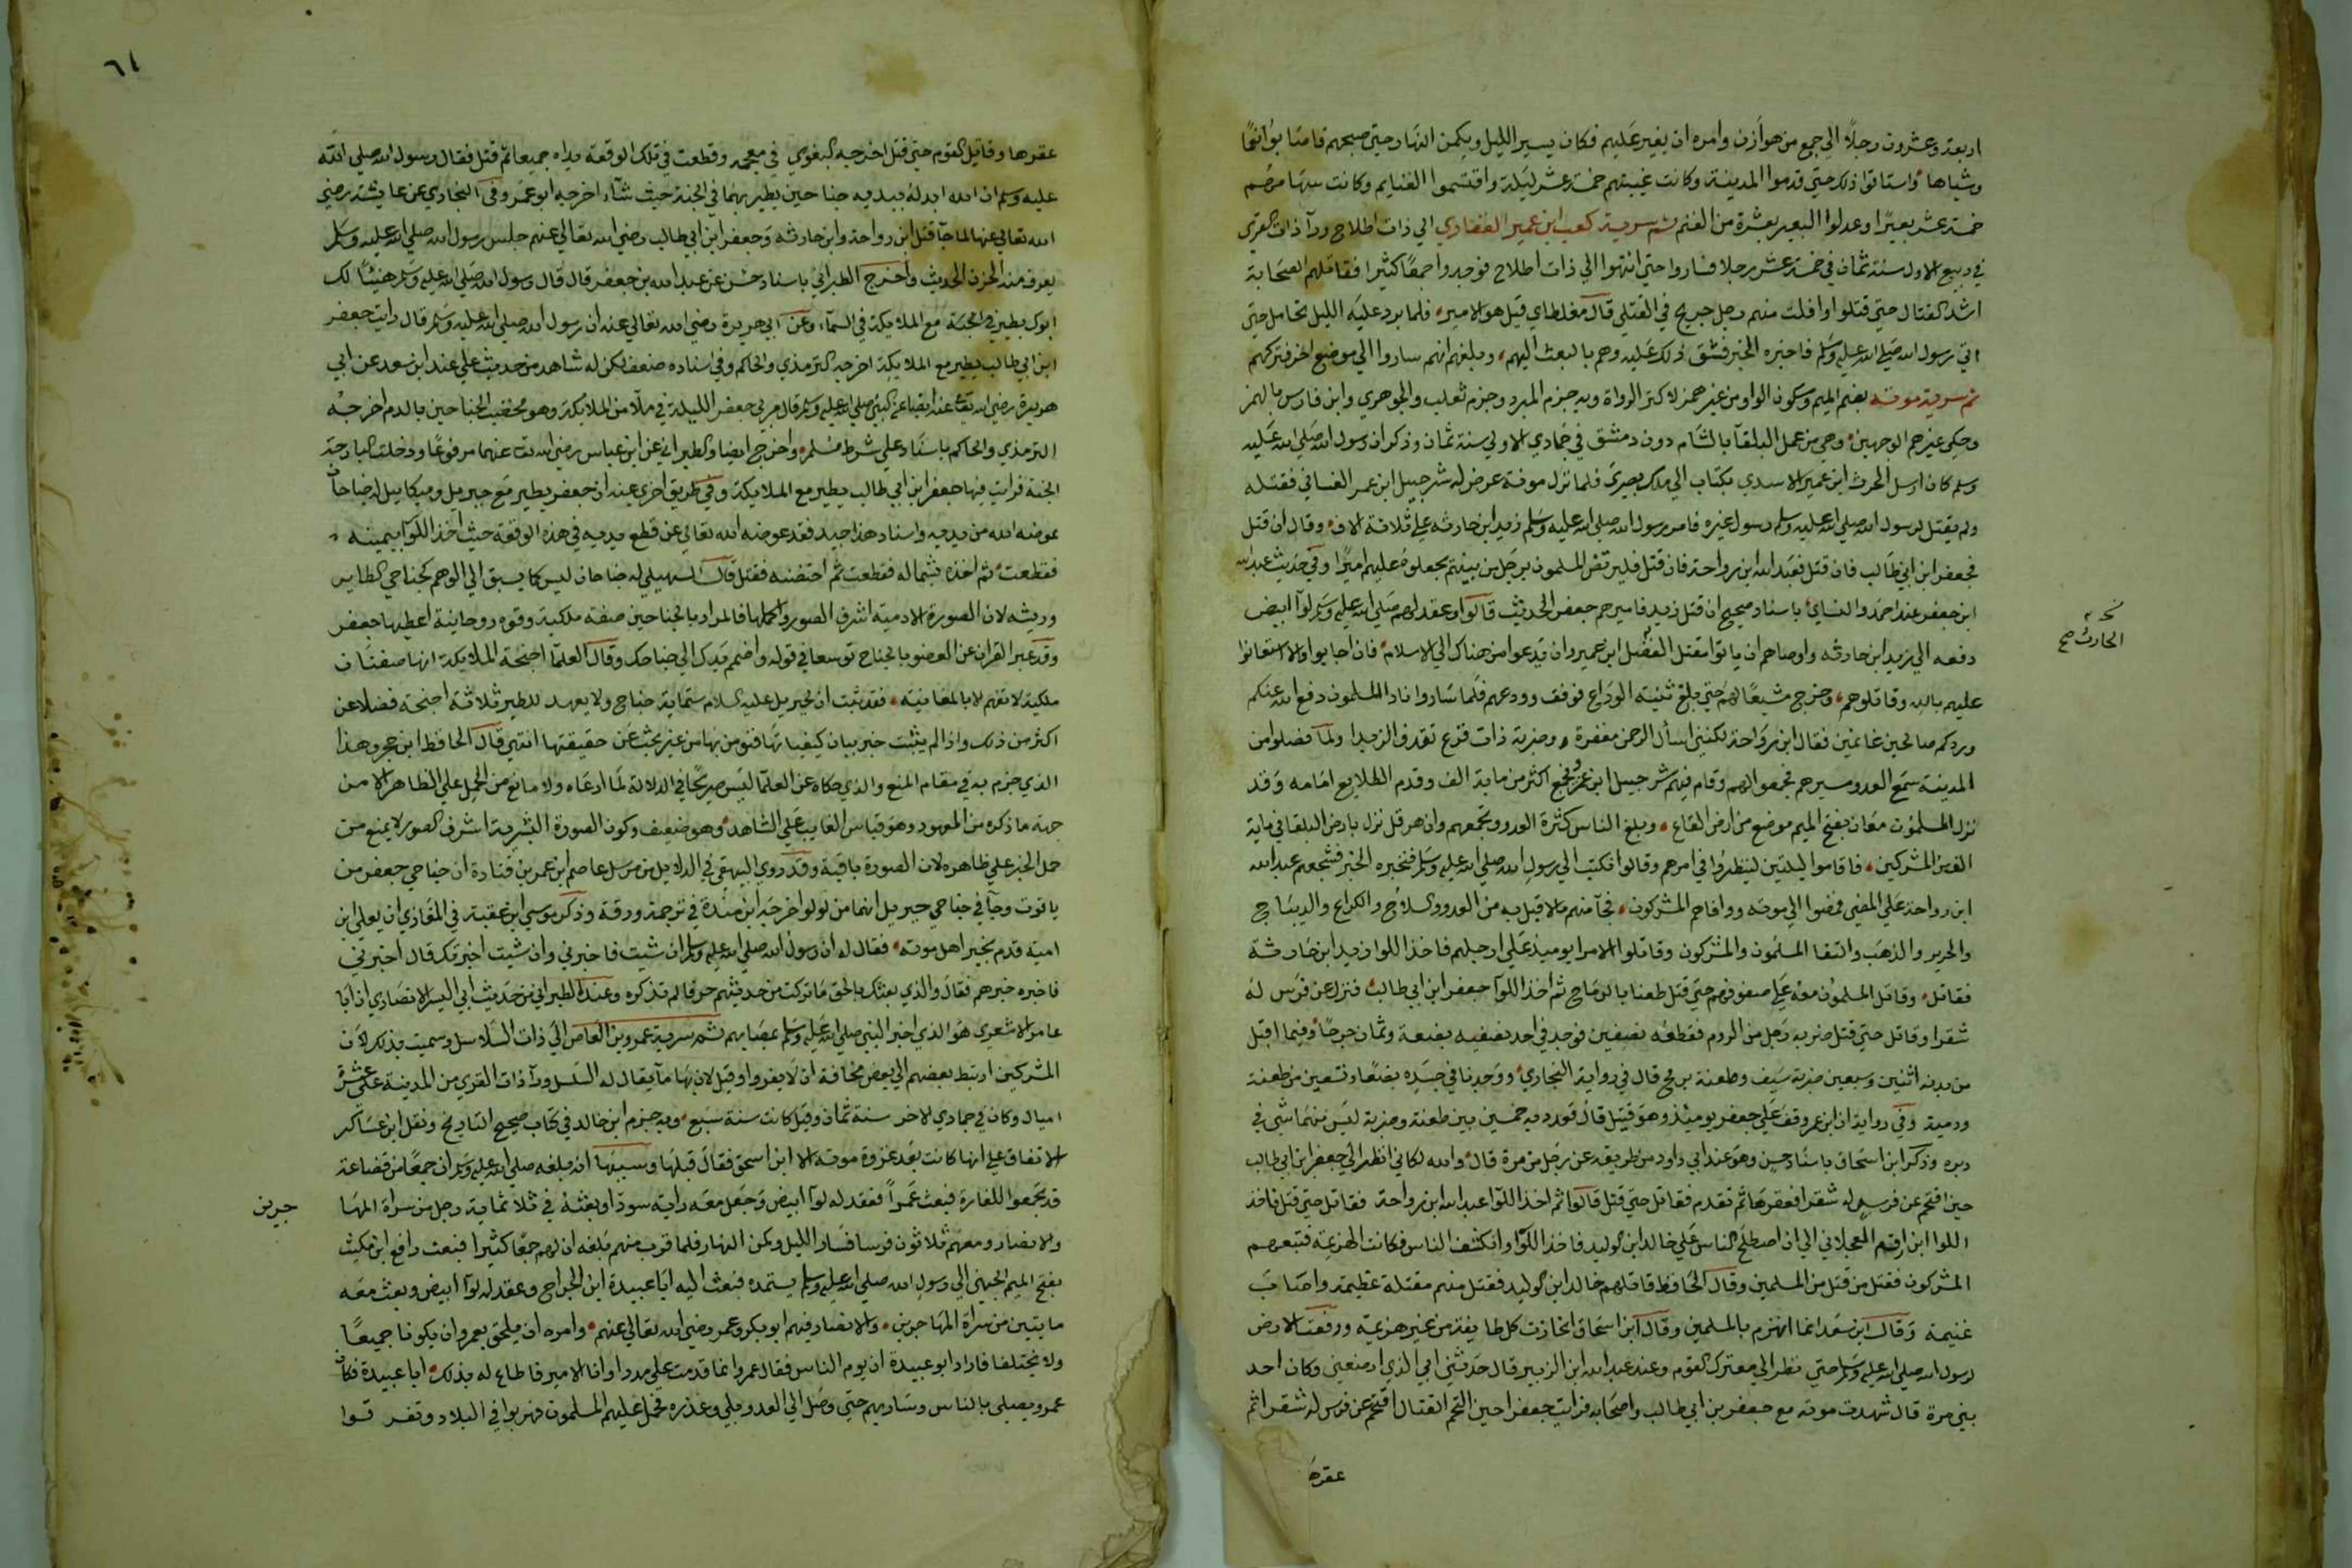 اربعة وعشرون رجلاً الي جمع من هوازن وامره ان يغير عليهم فكان يسير الليل ويكمن النهار حتي صبحهم فاصابوا نعمًا
وشياها واستاقوا ذلك حتي قدموا المدينة وكانت غيبتهم خمسة عشر ليلة واقتسموا الغنايم وكانت سهامهم
خمسة عشر بعيرًا وعدلوا البعير بعشرة من الغنم ثم سرية كعب ابن عمير الغفاري الي ذات اطلاح ورآ ذات القري
في ربيع الاول سنة ثمان في خمسة عشر رجلا فساروا حتي انتهوا الي ذات اطلاح فوجدوا جمعًا كثيرا فقاتلهم الصحابة
اشد القتال حتي قتلوا وافلت منهم رجل جريح في القتلي قال مغلطاي قيل هو الامير فلما برد عليه الليل تحامل حتي
اتي رسول الله صلي الله عليه وسلم فاخبره الخبر فشق ذلك عليه وهم بالبعث اليهم وبلغه انهم ساروا الي موضع اخر فتركهم
ثم سرية موتة بضم الميم وسكون الواو من غير همز لاكثر الرواة وبه جزم المبرد وجزم ثعلب والجوهري وابن فارس بالهمز
وحكي غيرهم الوجهين وهي من عمل البلقا بالشام دون دمشق في جمادي الاولي سنة ثمان وذكر ان رسول الله صلي الله عليه
وسلم كان ارسل الحرث ابن عمير الاسدي بكتاب الي ملك بصري فلما نزل موتة عرض له شرحبيل ابن عمر الغساني فقتله
ولم يقتل لرسول الله صلي الله عليه وسلم رسول غيره فامر رسول الله صلي الله عليه وسلم زيد ابن حارثه علي ثلاثة الاف وقال ان قتل
فجعفر ابن ابي طالب فان قتل فعبد الله ابن رواحة فان قتل فليرتض المسلمون برجل من بينهم يجعلوه عليهم اميرًا وفي حديث عبدالله
ابن جعفر عند احمد والنساي باسناد صحيح ان قتل زيد فاميرهم جعفر الحديث قالوا وعقد لهم صلي الله عليه وسلم لوآ ابيض
دفعه الي زيد ابن حارثه واوصاهم ان ياتوا مقتل ابن عمير وان يدعوا من هناك الي الاسلام فان اجابوا والا استعانوا
نخـ
الحارث صح
عليهم بالله وقاتلوهم وخرج مشيعًا لهم حتي بلغ ثنية الوداع فوقف وودعهم فلما ساروا نادا المسلمون دفع الله عنكم
وردكم صالحين غانمين فقال ابن رواحة لكنني اسأل الرحمن مغفرة وضربة ذات قزع تقذف الزبدا ولما فصلوا من
المدينة سمع العدو مسيرهم فجمعوا لهم وقام فيهم شرحبيل ابن عمرو فجمع اكثر من ماية الف وقدم الطلايع امامه وقد
نزل المسلمون معان بفتح الميم موضع من ارض القاع وبلغ الناس كثرة العدو وتجمعهم وان هرقل نزل بارض البلقا في ماية
الف من المشركين فاقاموا ليلتين لينظروا في امرهم وقالوا نكتب الي رسول الله صلي الله عليه وسلم فنخبره الخبر فشجعهم عبد الله
ابن رواحة علي المضي فمضوا الي موته ووافاهم المشركون فجآ منهم ما لا قبل به من العدو والسلاح والكراع والديباج
والحرير والذهب والتقا المسلمون والمشركون وقاتلوا الامرا يوميذ علي ارجلهم فاخذ اللوا زيد ابن حارثة
فقاتل وقاتل المسلمون معه علي صفوفهم حتي قتل طعنا بالرماح ثم اخذ اللوآ جعفر ابن ابي طالب فنزل عن فرس له
شقرا وقاتل حتي قتل ضربه رجل من الروم فقطعه نصفين فوجد في احد نصفيه بضعة وثمان جرحًا وفيما اقبل
من بدنه اثنين وسبعين ضربة بسيف وطعنة برمح قال في رواية البخاري ووجدنا في جسده بضعًا وتسعين من طعنة
ورمية وفي رواية ان ابن عمر وقف علي جعفر يوميذ وهو قتيل قال فعددت به خمسين بين طعنة وضربة ليس منها شي في
دبره وذكر ابن اسحاق باسناد حسن وهو عند ابي داود من طريقه عن رجل من مرة قال والله لكاني انظر الي جعفر ابن ابي طالب
حين اقتحم عن فرس له شقرا فعقرها ثم تقدم فقاتل حتي قتل قالوا ثم اخذ اللوآ عبد الله ابن رواحة فقاتل حتي قتل فاخذ
اللوا ابن ارقم العجلاني الي ان اصطلح الناس علي خالد ابن الوليد فاخذ اللوآ وانكشف الناس فكانت الهزيمة فتبعهم
المشركون فقتل من قتل من المسلمين وقال الحافظ قاتلهم خالد ابن الوليد فقتل منهم مقتلة عظيمة واصاب
غنيمة وقال ابن سعد انما انهزم بالمسلمين وقال ابن اسحاق انحازت كل طايفة من غير هزيمة ورفعت الارض
لرسول الله صلي الله عليه وسلم حتي نظر الي معترك القوم وعند عبد الله ابن الزبير قال حدثني ابي الذي ارضعني وكان احد
بني مرة قال شهدت موته مع جعفر بن ابي طالب واصحابه فرايت جعفرا حين التحم القتال اقتحم عن فرس له شقرا ثم
عقرها
٦١
عقرها وقاتل القوم حتي قتل اخرجه البغوي في معجمه وقطعت في تلك الوقعة يداه جميعا ثم قتل فقال رسول الله صلي الله
عليه وسلم ان الله ابدله بيديه جناحين يطير بهما في الجنة حيث شآء اخرجه ابو عمر وفي البخاري عن عايشة رضي
الله تعالي عنها لما جآ قتل ابن رواحة وابن حارثه وجعفر ابن ابي طالب رضي الله تعالي عنهم جلس رسول الله صلي الله عليه وسلم
يعرف منه الحزن الحديث واخرج الطبراني باسناد حسن عن عبد الله بن جعفر قال قال رسول الله صلي الله عليه وسلم هنيئًا لك
ابوك يطير في الجنة مع الملايكة في السمآء وعن ابي هريرة رضي الله تعالي عنه ان رسول الله صلي الله عليه وسلم قال رايت جعفر
ابن ابي طالب يطير مع الملايكة اخرجه الترمذي والحاكم وفي اسناده ضعف لكن له شاهد من حديث علي عند ابن سعد عن ابي
هريرة رضي الله تعا عنه ايضا عن النبي صلي الله عليه وسلم قال مر بي جعفر الليلة في ملأ من الملايكة وهو مخضب الجناحين بالدم اخرجه
الترمذي والحاكم باسناد علي شرط مسلم واخرج ايضا والطبراني عن ابن عباس رضي الله تعا عنهما مرفوعًا دخلت البارحة
الجنة فرايت فيها جعفر ابن ابي طالب يطير مع الملايكة وفي طريق اخري عنه ان جعفر يطير مع جبريل وميكاييل له جناحان
عوضه الله من يديه واسناد هذا جيد فقد عوضه الله تعالي عن قطع يديه في هذه الوقعة حيث اخذ اللوآ بيمينه
فقطعت ثم اخذه بشماله فقطعت ثم احتضنه فقتل قال السهيلي له جناحان ليس كما يسبق الي الوهم كجناحي الطاير
وريشه لان الصورة الادمية اشرف الصور واكملها فالمراد بالجناحين صفة ملكية وقوه روحانية اعطيها جعفر
وقد عبر القران عن العضو بالجناح توسعا في قوله واضمم يدك الي جناحك وقال العلمآ اجنحة الملايكة انها صفتان
ملكية لا تفهم الا بالمعاينة فقد ثبت ان لجبريل عليه السلام ستماية جناح ولا يعهد للطير ثلاثة اجنحة فضلا عن
اكثر من ذلك واذا لم يثبت خبر ببيان كيفياتها فنومن بها من غير بحث عن حقيقتها انتهي قال الحافظ ابن حجر وهذا
الذي جزم به في مقام المنع والذي حكاه عن العلمآ ليس صريحًا في الدلالة لما ادعاه ولا مانع من الحمل علي الظاهر الا من
جهة ما ذكره من المعهود وهو قياس الغايب علي الشاهد وهو ضعيف وكون الصورة البشرية اشرف الصور لا يمنع من
حمل الخبر علي ظاهره لان الصورة باقية وقد روي البيهقي في الدلايل من مرسل عاصم ابن عمر بن قتادة ان جناحي جعفر من
ياقوت وجآ في جناحي جبريل انهما من لولو اخرجه ابن مندة في ترجمة ورقة وذكر موسي ابن عقبة في المغازي ان يعلي ابن
امية قدم بخبر اهل موته فقال له رسول الله صلي الله عليه وسلم ان شيت فاخبرني وان شيت اخبرتك قال اخبرني
فاخبره خبرهم فقال والذي بعثك بالحق ما تركت من حديثهم حرفا لم تذكره وعند الطبراني من حديث ابي اليسر الانصاري ان ابا
عامر الاشعري هو الذي اخبر النبي صلي الله عليه وسلم بمصابهم ثم سرية عمرو بن العاص الي ذات السلاسل وسميت بذلك لان
المشركين ارتبط بعضهم الي بعض مخافة ان لا يفروا وقيل لان بها مآ يقال له السلسل ورآ ذات القري من المدينة علي عشرة
اميال وكان في جمادي الاخر سنة ثمان وقيل كانت سنة سبع وبه جزم ابن خالد في كتاب صحيح التاريخ ونقل ابن عساكر
الاتفاق علي انها كانت بعد غزوة موته الا ابن اسحق فقال قبلها وسببها انه بلغه صلي الله عليه وسلم ان جمعًا من قضاعة
قد تجمعوا للغارة فبعث عمرًا فعقد له لوآ ابيض وجعل معه راية سودا وبعثه في ثلاثماية رجل من سراة المها
جرين
والانصار ومعهم ثلاثون فرسا فسار الليل وكمن النهار فلما قرب منهم بلغه ان لهم جمعًا كثيرا فبعث رافع ابن مكيث
بفتح الميم الجهني الي رسول الله صلي الله عليه وسلم يستمده فبعث اليه ابا عبيدة ابن الجراح وعقد له لوآ ابيض وبعث معه
مايتين من سراة المهاجرين والانصار فيهم ابو بكر وعمر رضي الله تعالي عنهم وامره ان يلحق بعمرو وان يكونا جميعًا
ولا يختلفا فاراد ابو عبيدة ان يوم الناس فقال عمرو انما قدمت علي مددا وانا الامير فاطاع له بذلك ابا عبيدة فكان
عمرو يصلي بالناس وسار بهم حتي وصل الي العدو بلي وعذره فحمل عليهم المسلمون فهربوا في البلاد وتفرقوا